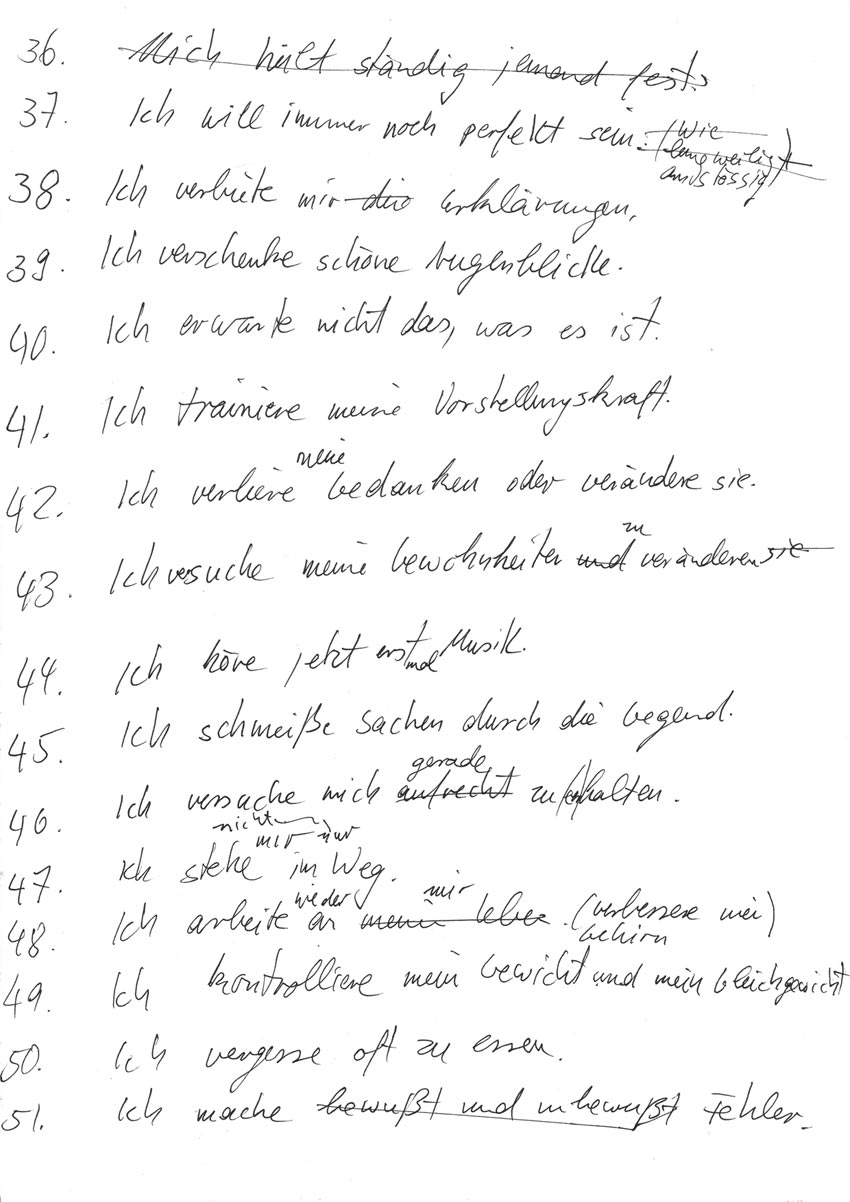 36. Mich hält ständig jemand fest.
37. Ich will immer noch perfekt sein. (Wie
langweilig)
anstössig)
38. Ich verbiete mir die Erklärungen.
39. Ich verschenke schöne Augenblicke.
40. Ich erwarte nicht das, was es ist.
41. Ich trainiere meine Vorstellungskraft.
meine
42. Ich verliere Gedanken oder verändere sie.
zu
43. Ich versuche meine Gewohnheiten und verändern sie
44. Ich höre jetzt erst mal Musik.
45. Ich schmeiße Sachen durch die Gegend.
gerade
46. Ich versuche mich aufrecht zu halten.
nicht
mir nur
47. Ich stehe im Weg.
wieder mir
48. Ich arbeite an mein Leben. (verbessere mei)
Gehirn
49. Ich kontrolliere mein Gewicht und mein Gleichgewicht
50. Ich vergesse oft zu essen.
51. Ich mache bewußt und unbewußt Fehler.